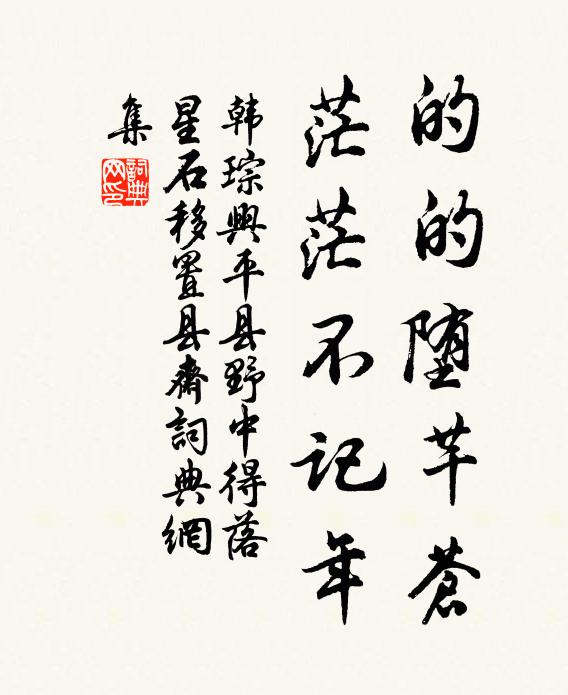 的的堕芊蒼
茫茫不记年
韩琮興平县野中得落
星石移置县齋詞典網
集
詞典
网印